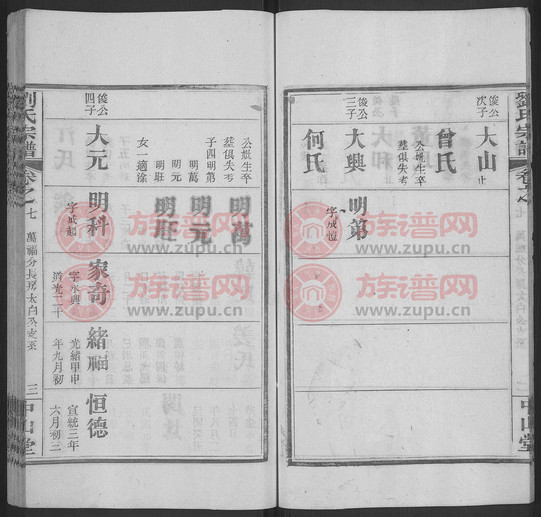 劉氏宗譜
卷之七
中山堂
俊公次子
大山
止
曾氏
公媲生卒
葬俱失考
俊公三子
大興
何氏
明弟
字成愷
公媲生卒
葬俱失考
子四明第
明萬
明元
明旺
女一適涂
明萬
明元
明旺
俊公四子
大元
明科
字成起
家奇
字永興
道光二十
緒福
光緒甲申
年九月初
恒德
宣統三年
六月初三
劉氏宗譜
卷之七
萬福分長房太白公支系
三
中山堂
族谱网
www.zupu.cn
族谱网
www.zupu.cn
族谱网
www.zupu.cn
族谱网
www.zupu.cn